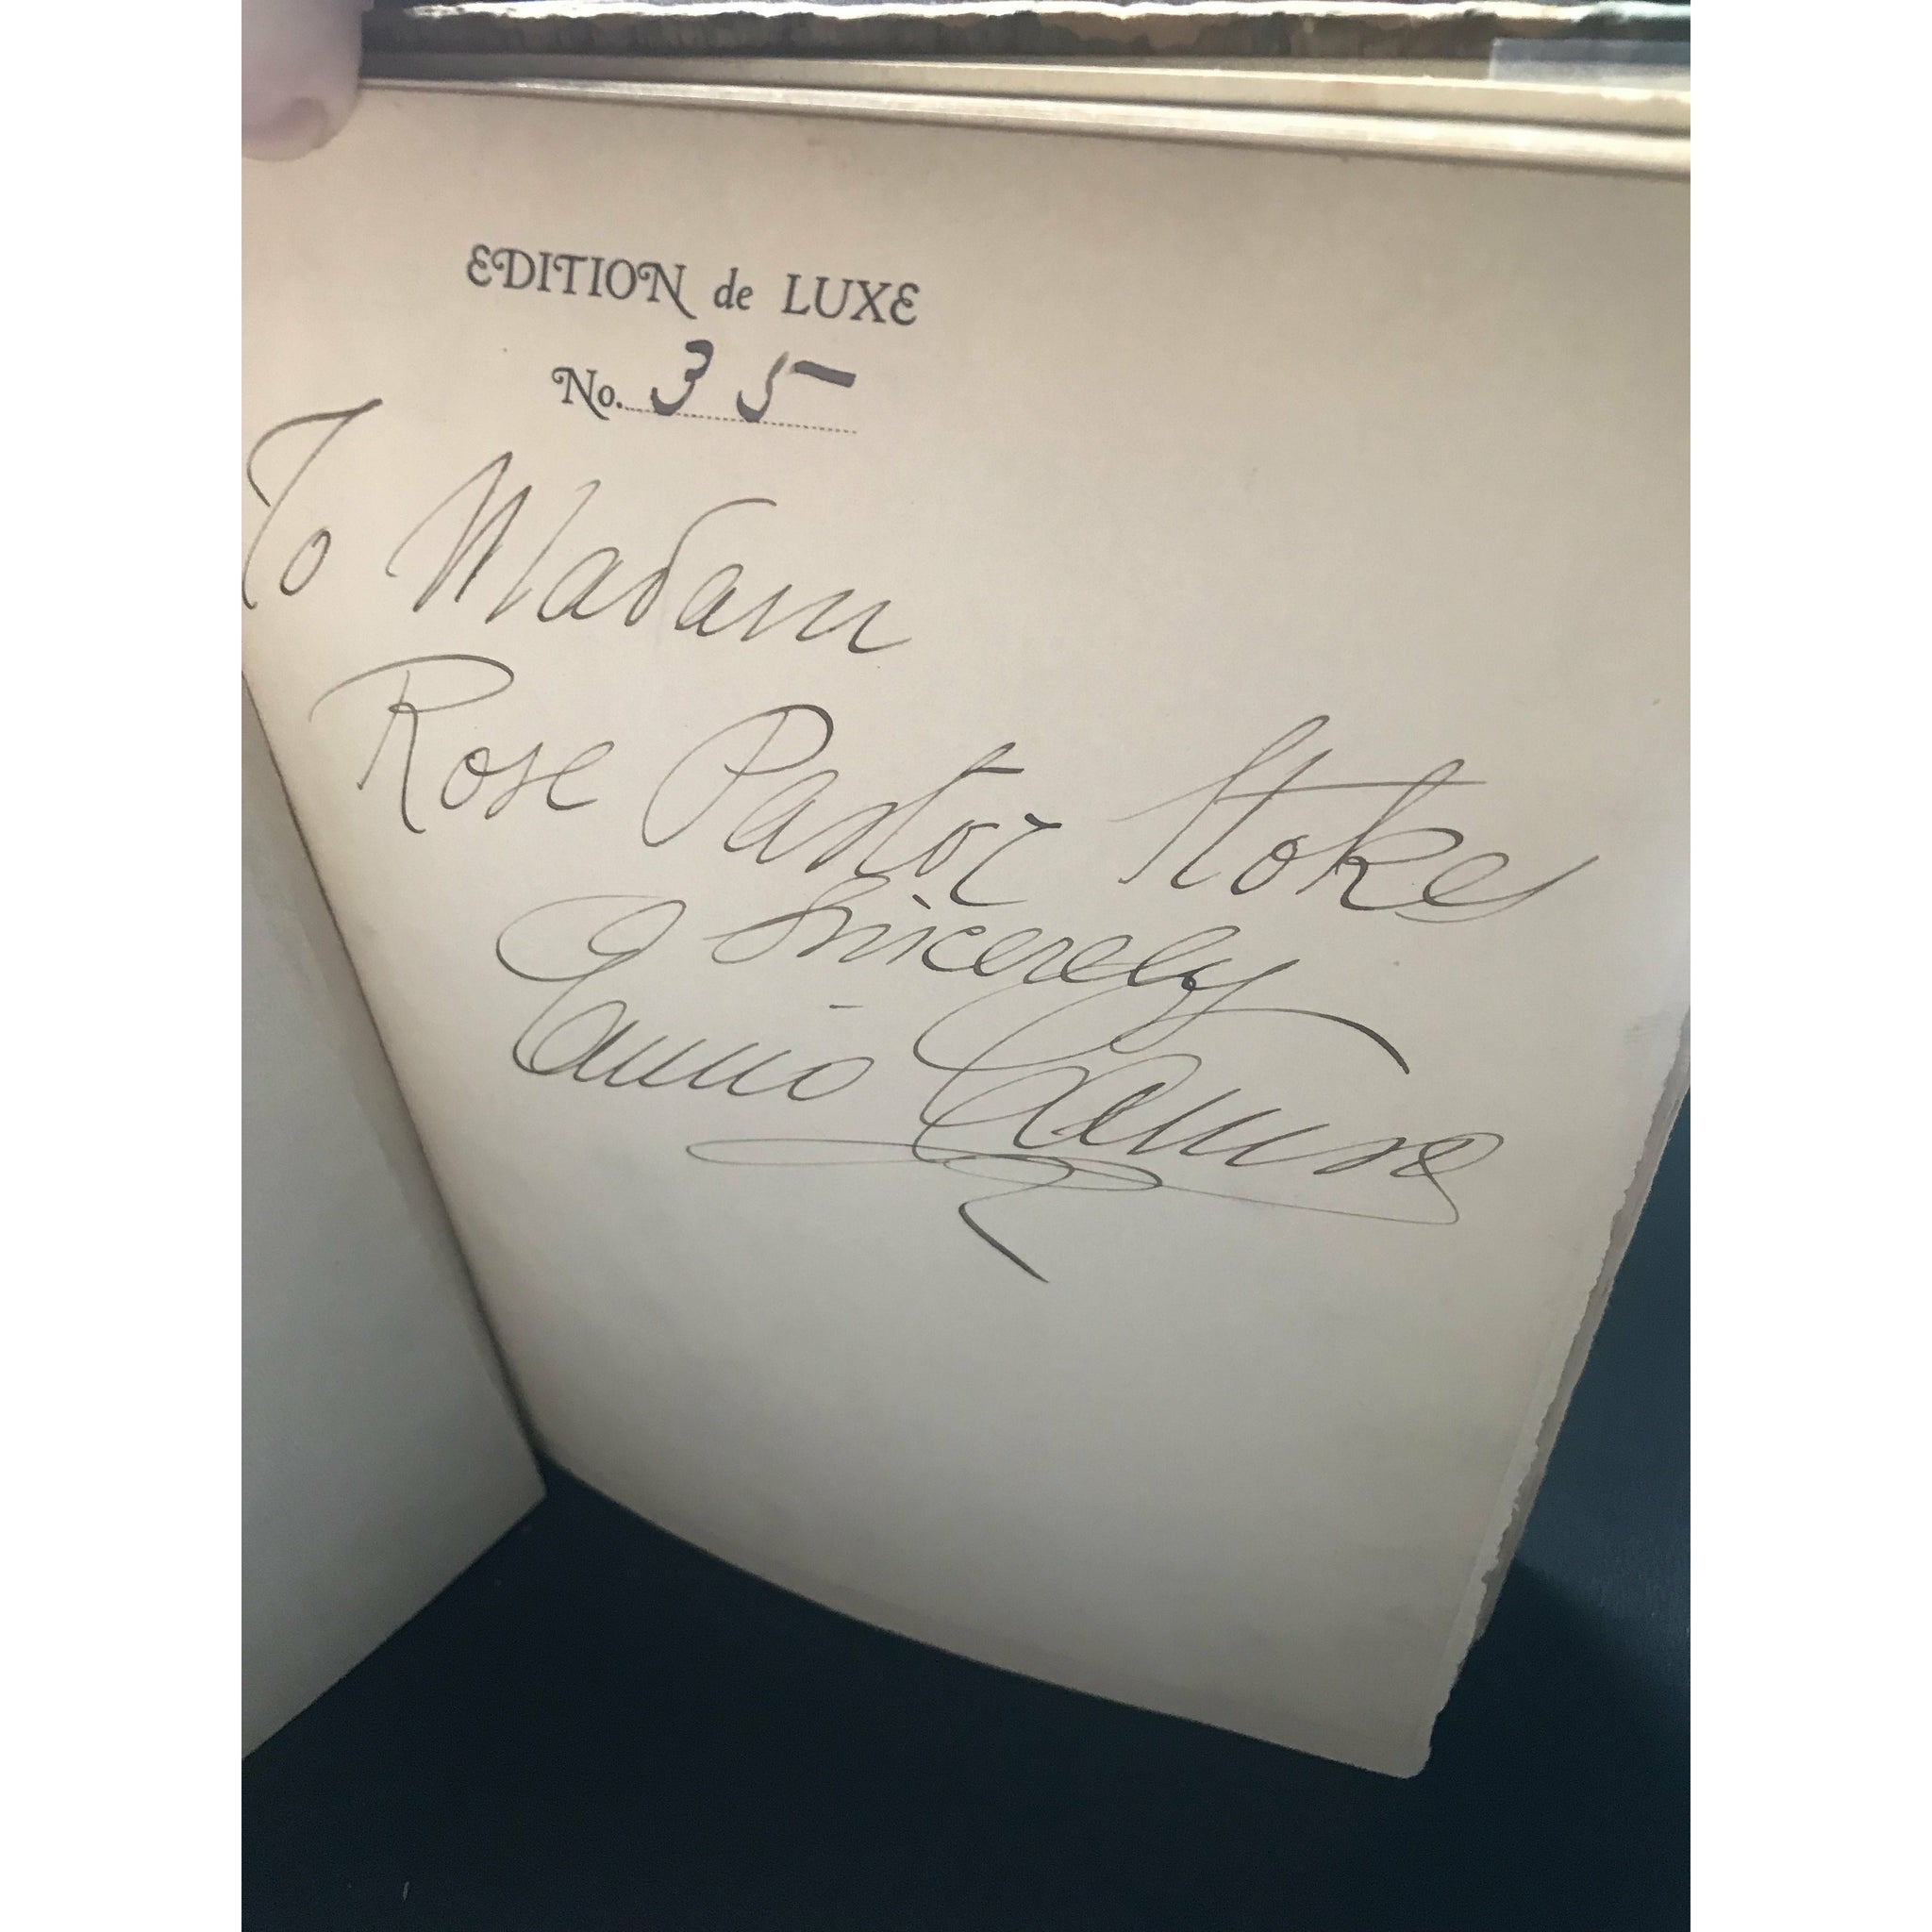 EDITION de LUXE
No. 35
To Madam
Rose Pastor Stokes
Sincerely